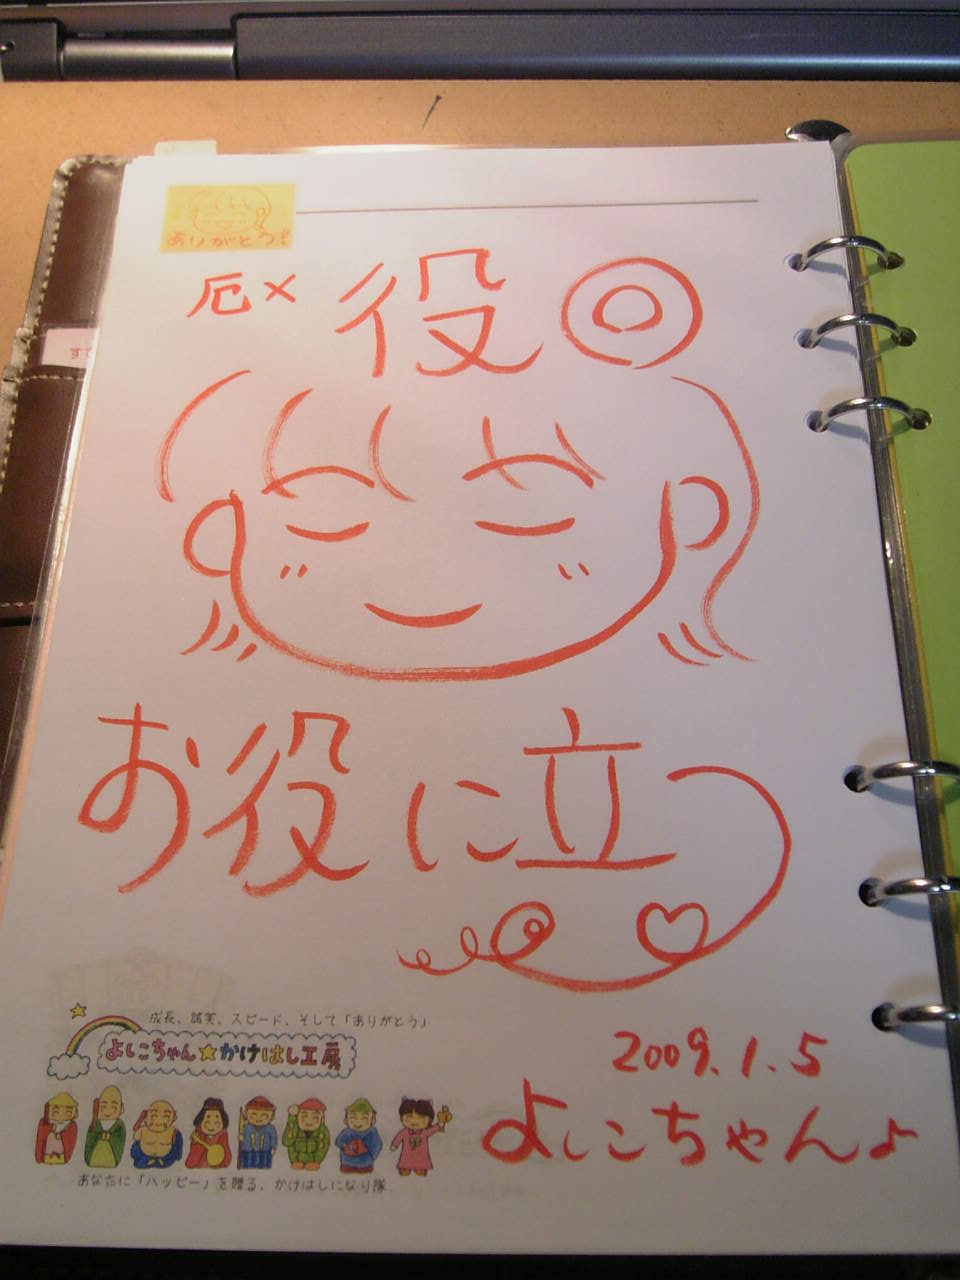 ありがとう!
厄× 役◎
お役に立つ
成長、誠実、スピード、そして「ありがとう」
よしこちゃん☆かけはし工房
あなたに「ハッピー」を贈る、かけはしになり隊
2009.1.5
よしこちゃん♪